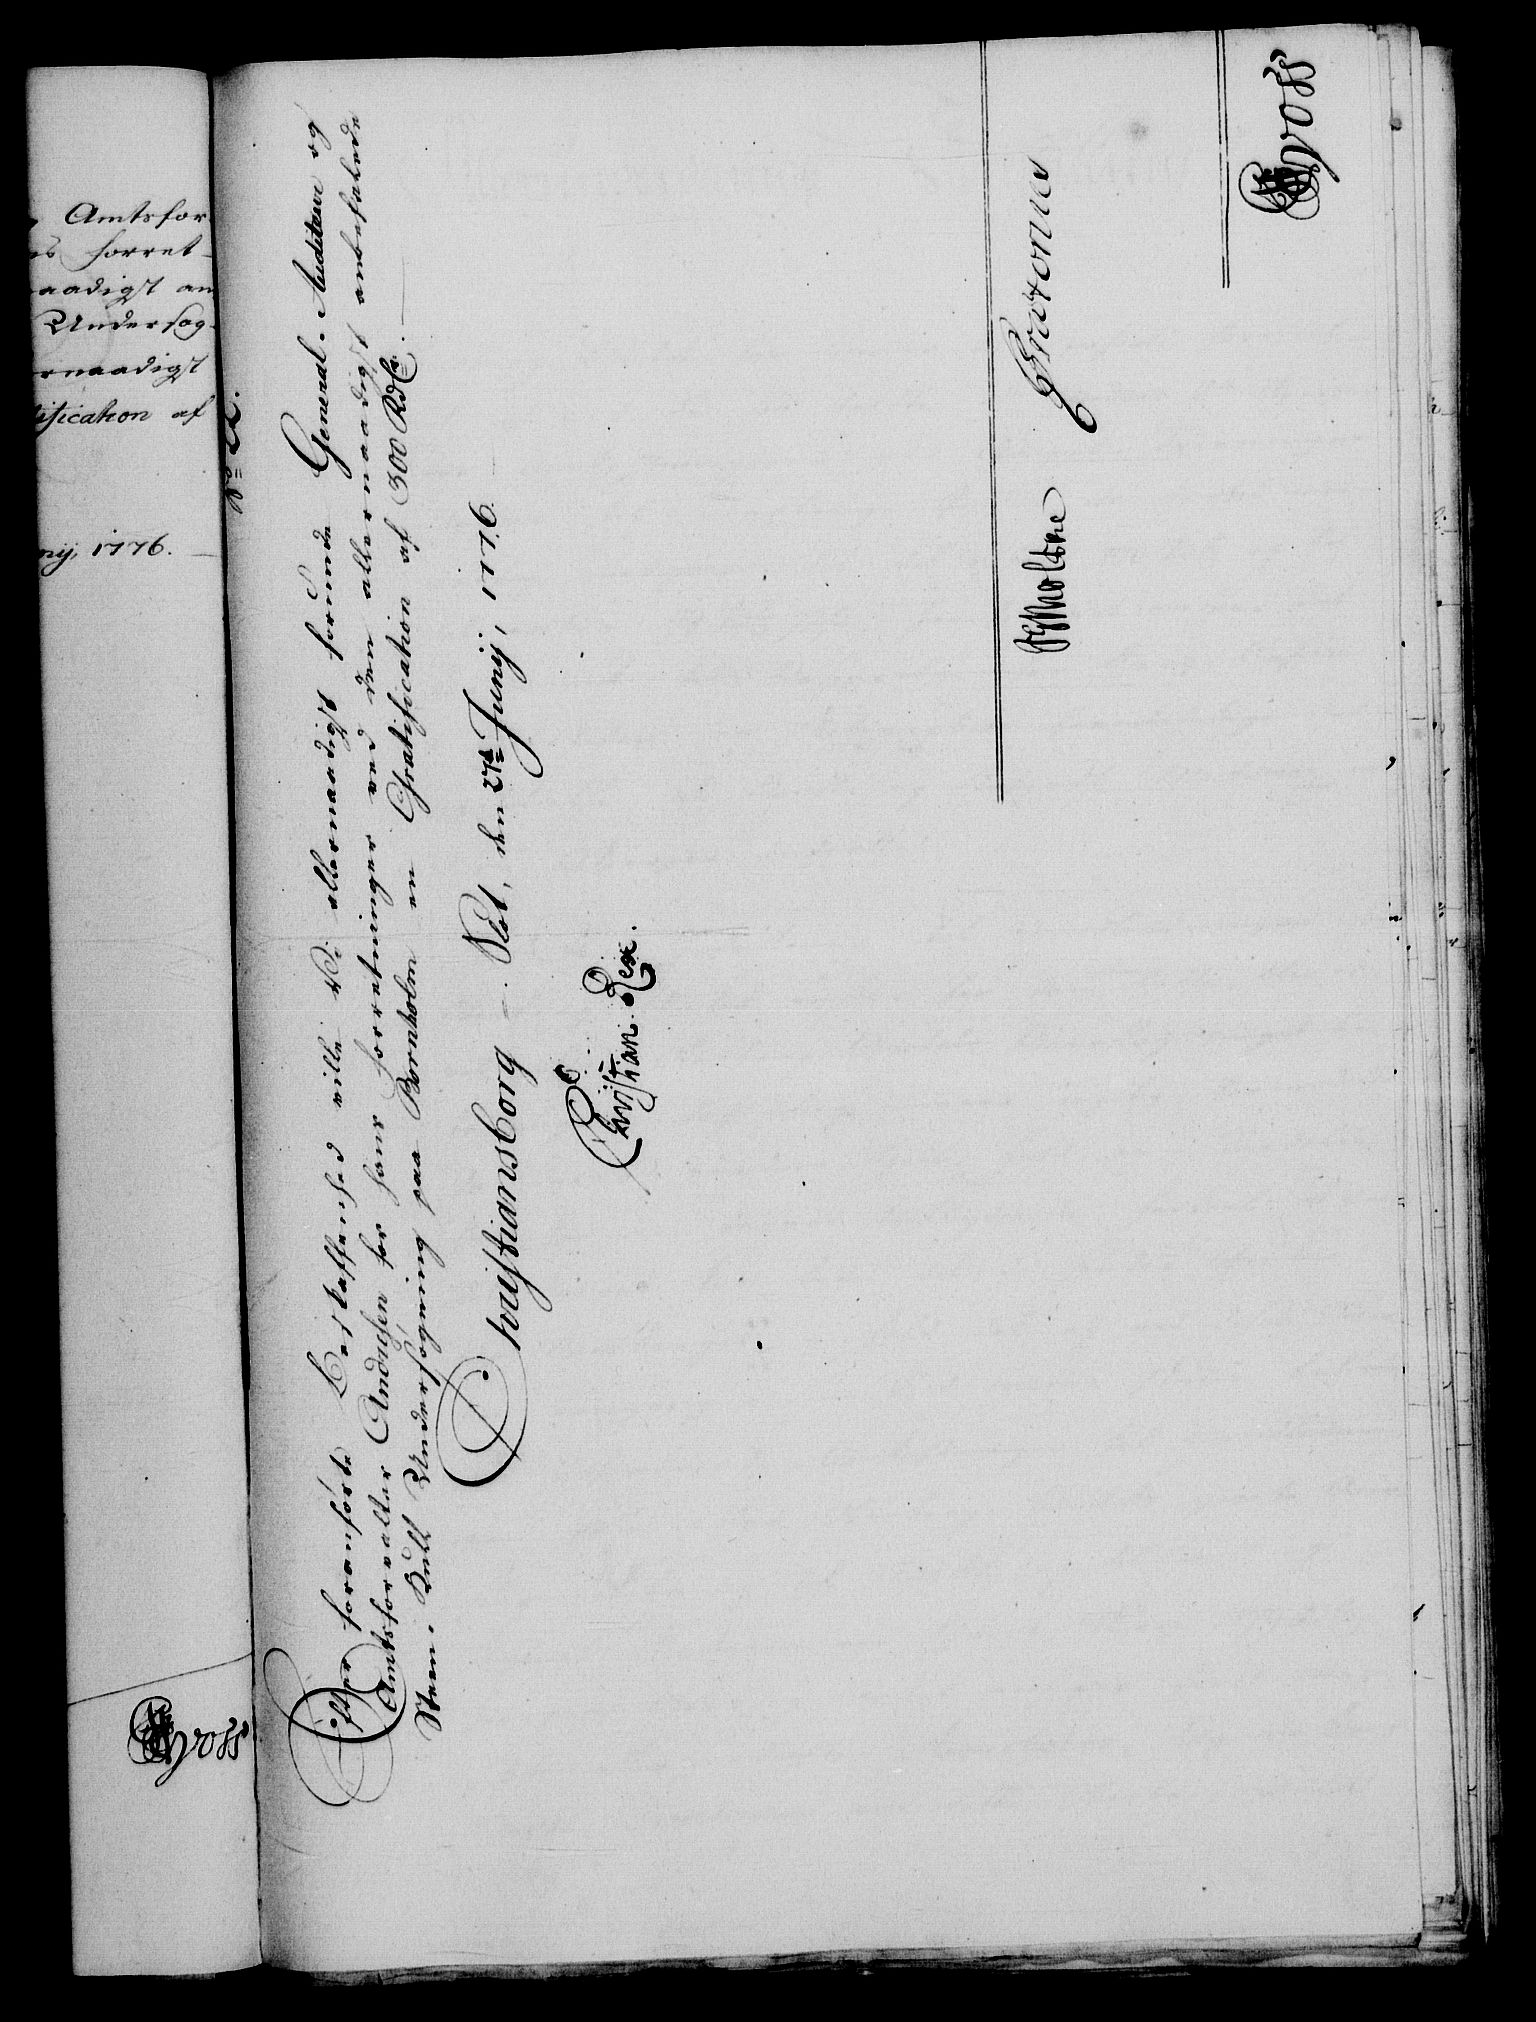 Amtsfor
forret-
aadigst an
Undersøg-
rnaadigst
tification af
nij, 1776.
Efter foranførte Beskaffenhed ville Vi allernaadigst forunde General-Auditeur og
Amtsforvalter Andresen for hans Forretninger ved den allernaadigst anbefalede
Steen-Kull Undersøgning paa Bornholm en Gratification af 300 Rdlr.
Christiansborg-Slot, den 27de Junij, 1776.
Christian Rex.